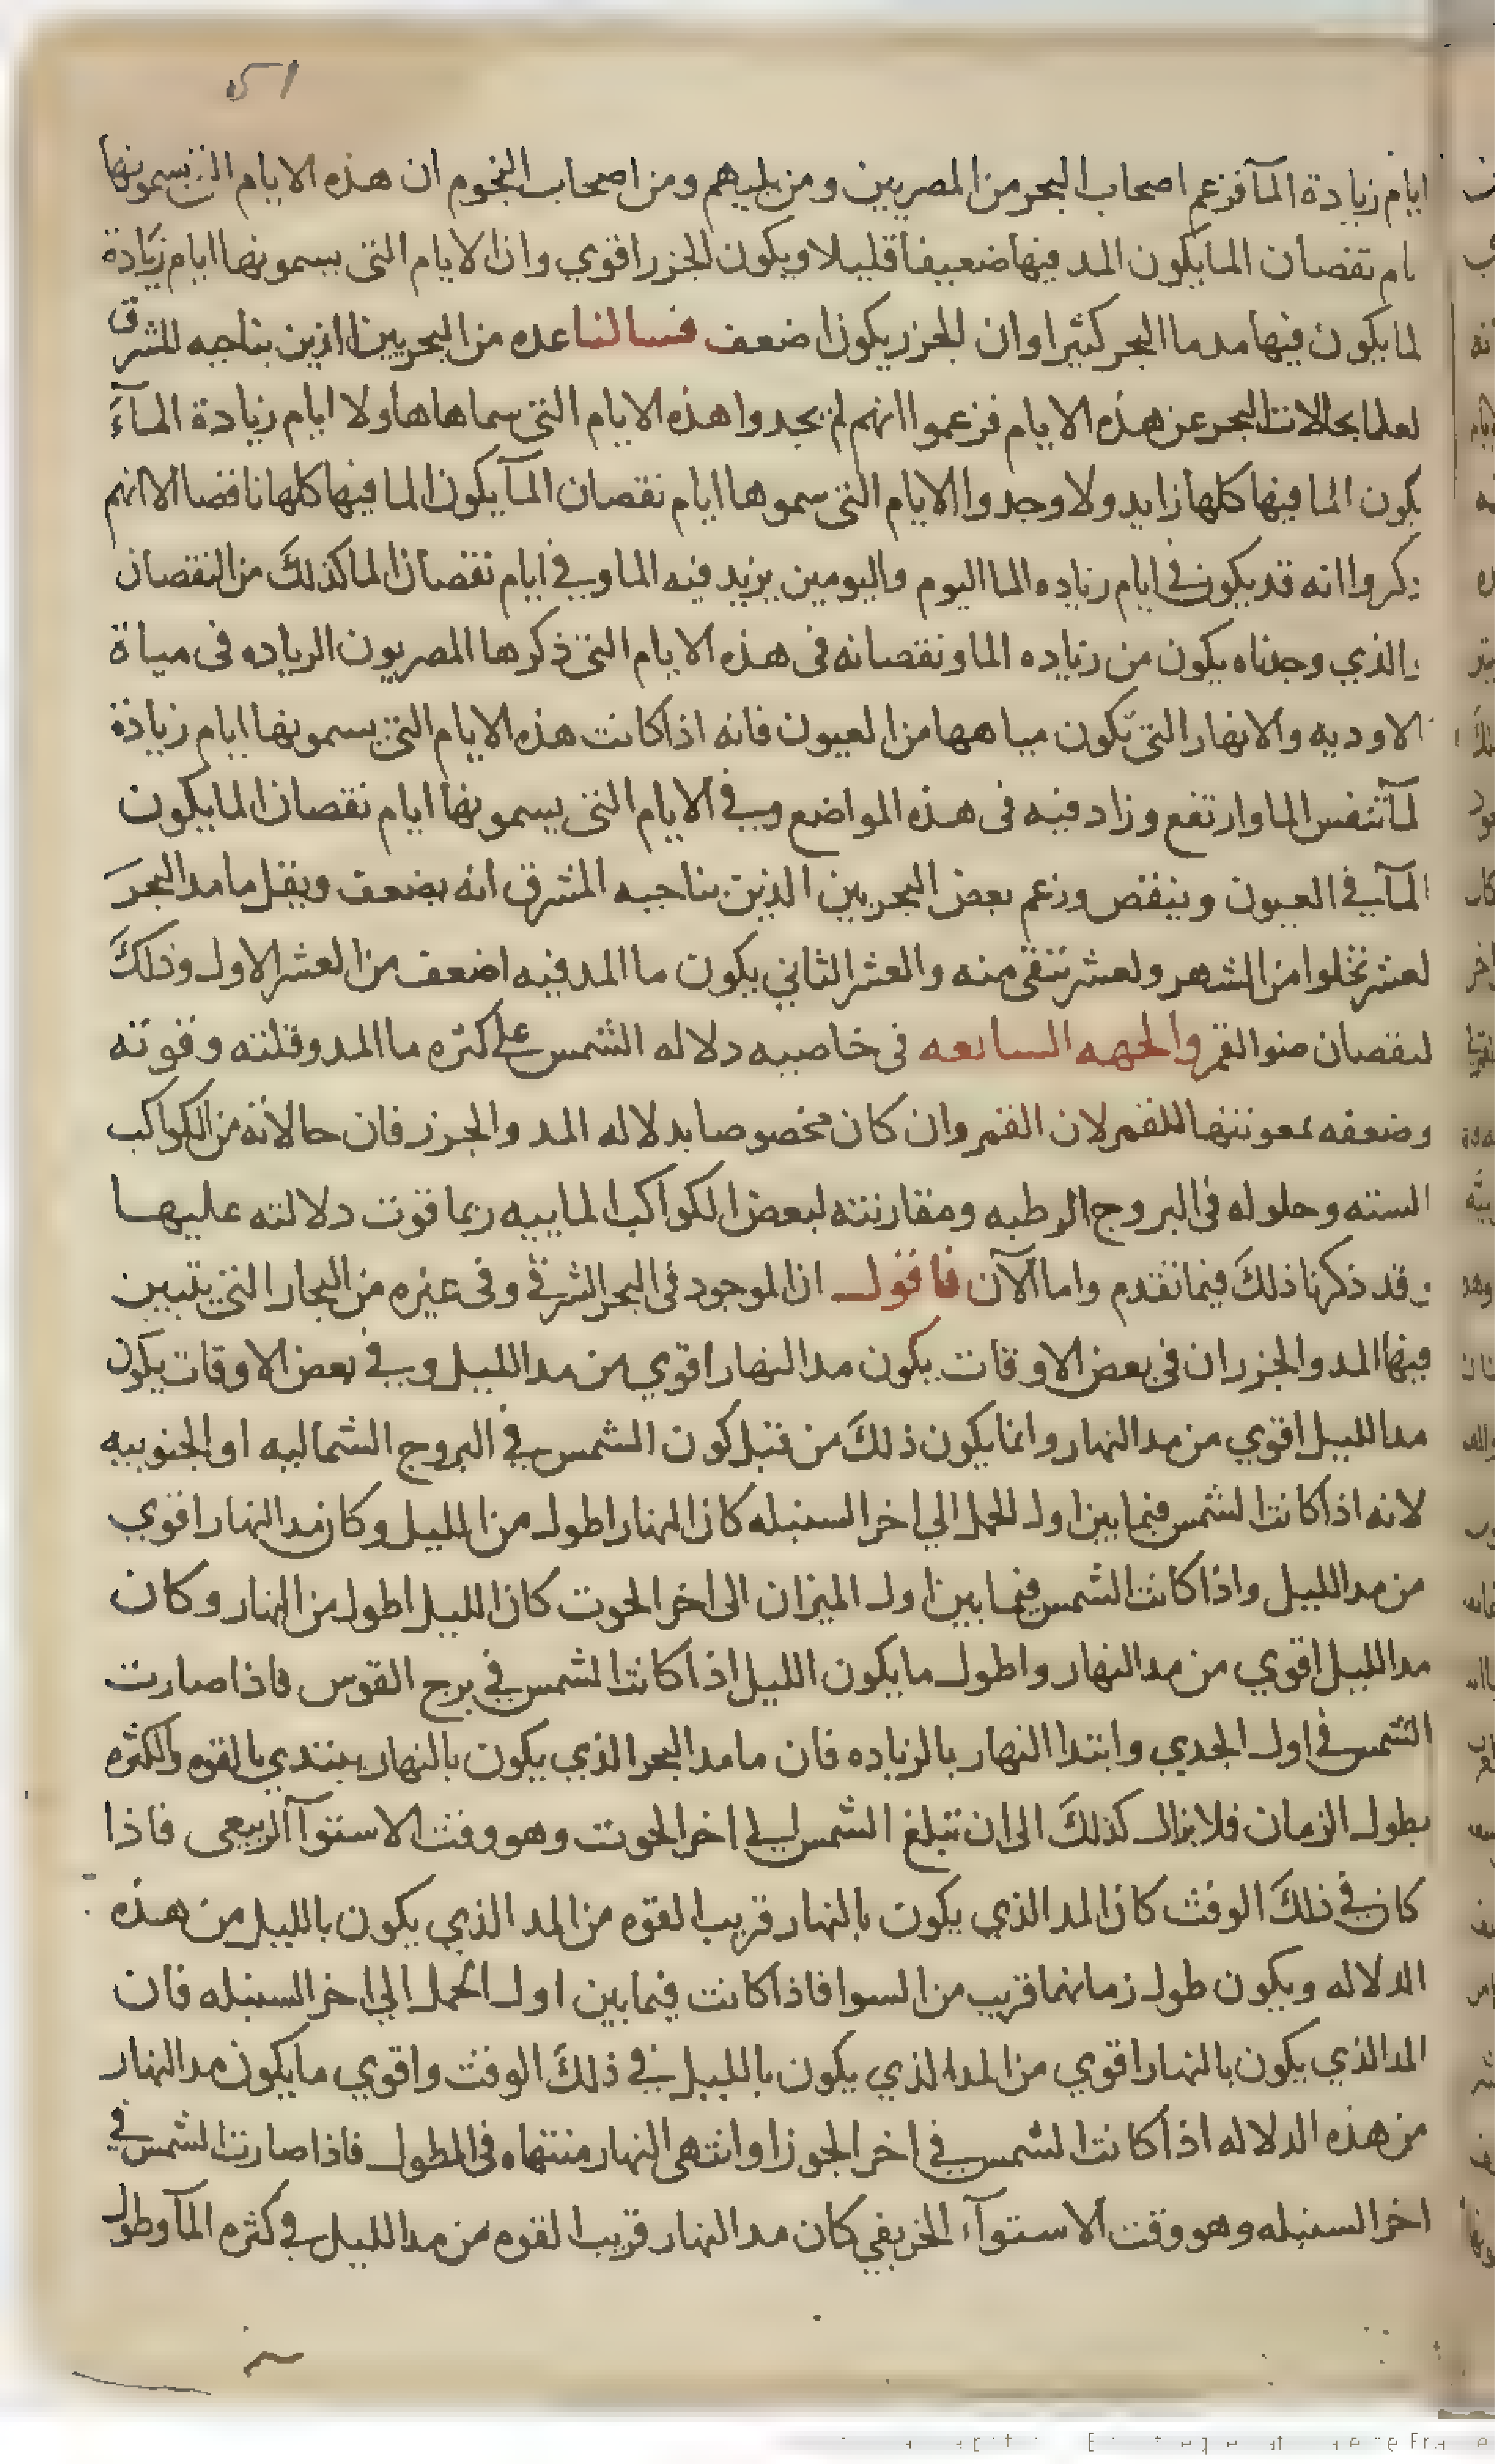 51
ايام زيادة المآ فزعم اصحاب البحر من المصريين ومن يليهم ومن اصحاب النجوم ان هذه الايام التي يسمونها
ام نقصان الما يكون المد فيها ضعيفا قليلا ويكون الجزر اقوي وان الايام التي يسمونها ايام زيادة
لما يكون فيها مد ما البحر كثيرا وان الجزر يكون اضعف فسالنا عده من البحريين الذين بناحيه المشرق
لعلما بحالات البحر عن هذه الايام فزعموا انهم لم يجدوا هذه الايام التي سماها هاولا ايام زيادة المآء
يكون الما فيها كلها زايد ولا وجدوا الايام التي سموها ايام نقصان المآ يكون الما فيها كلها ناقصا الا انهم
ذكروا انه قد يكون في ايام زياده الما اليوم واليومين يزيد فيه الما وفي ايام نقصان الما كذلك من النقصان
والذي وجدناه يكون من زياده الما ونقصانه في هذه الايام التي ذكرها المصريون الزياده في مياة
الاوديه والانهار التي تكون مياهها من العيون فانه اذا كانت هذه الايام التي يسمونها ايام زيادة
لمآ تنفس الما وارتفع وزاد فيه في هذه المواضع وفي الايام التي يسمونها ايام نقصان الما يكون
المآ في العيون وينقص وزعم بعض البحريين الذين بناحيه المشرق انه يضعف ويقل ما مد البحر
لعشر تخلوا من الشهر ولعشر تبقي منه والعشر الثاني يكون ما المد فيه اضعف من العشر الاول وذلك
لنقصان ضو القمر والجهه السابعه في خاصيه دلاله الشمس علي كثره ما المد وقلته وقوته
وضعفه بمعونتها للقمر لان القمر وان كان مخصوصا بدلاله المد والجزر فان حالاته من الكواكب
السته وحلوله في البروج الرطبه ومقارنته لبعض الكواكب الماييه ربما قوت دلالته عليها
وقد ذكرنا ذلك فيما تقدم واما الآن فاقول ان الموجود في البحر الشرقي وفي غيره من البحار التي يتبين
فيها المد والجزر ان في بعض الاوقات يكون مد النهار اقوي من مد الليل وفي بعض الاوقات يكون
مد الليل اقوي من مد النهار وانما يكون ذلك من قبل كون الشمس في البروج الشماليه او الجنوبيه
لانه اذا كانت الشمس فيما بين اول الحمل الي اخر السنبله كان النهار اطول من الليل وكان مد النهار اقوي
من مد الليل واذا كانت الشمس فيما بين اول الميزان الى اخر الحوت كان الليل اطول من النهار وكان
مد الليل اقوي من مد النهار واطول ما يكون الليل اذا كانت الشمس في برج القوس فاذا صارت
الشمس في اول الجدي وابتدا النهار بالزياده فان ما مد البحر الذي يكون بالنهار يبتدي بالقوه والكثره
بطول الزمان فلا يزال كذلك الى ان تبلغ الشمس الي اخر الحوت وهو وقت الاستوآ الربيعي فاذا
كان في ذلك الوقت كان المد الذي يكون بالنهار قريب القوه من المد الذي يكون بالليل من هذه
الدلاله ويكون طول زمانهما قريب من السوا فاذا كانت فيما بين اول الحمل الي اخر السنبله فان
المد الذي يكون بالنهار اقوي من المد الذي يكون بالليل في ذلك الوقت واقوي ما يكون مد النهار
من هذه الدلاله اذا كانت الشمس في اخر الجوزا وانتهى النهار منتهاه في الطول فاذا صارت الشمس في
اخر السنبله وهو وقت الاستوآء الخريفي كان مد النهار قريب القوه من مد الليل في كثره المآ وطول